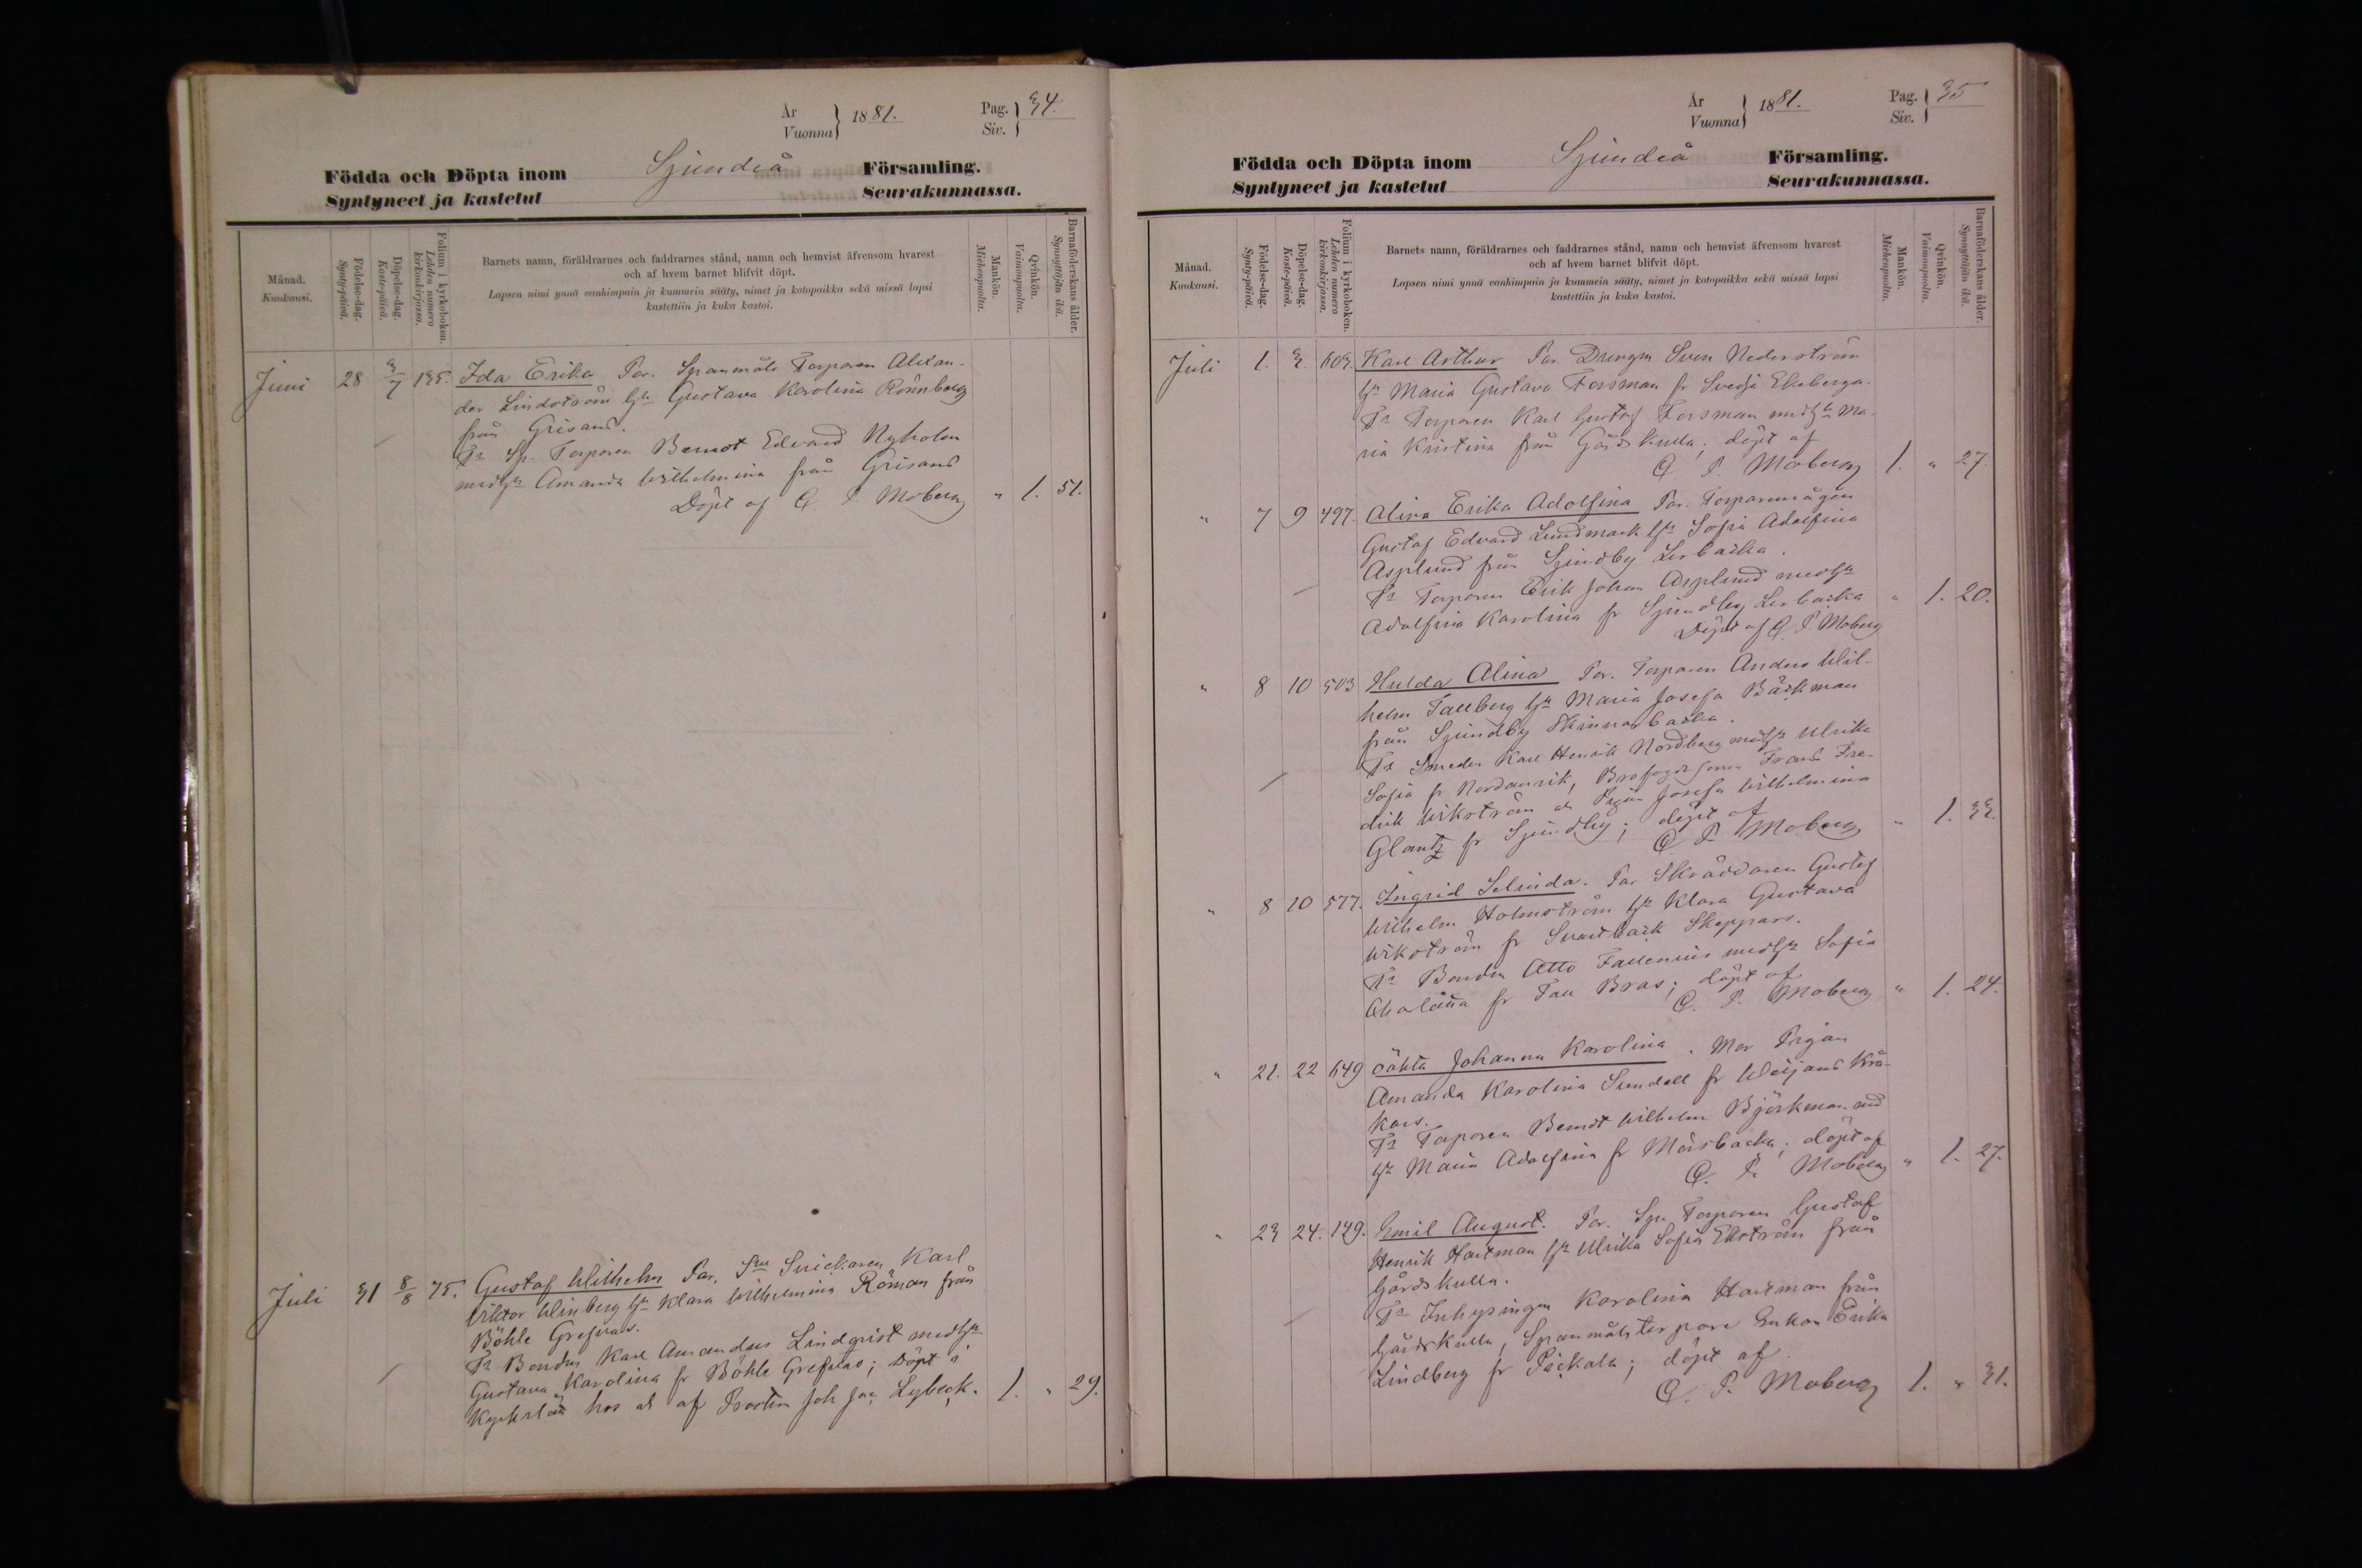 År
Vuonna
1881.
Pag.
Siv.
34.
Födda och Döpta inom
Sjundeå
Församling.
Syntyneet ja kastetut
Seurakunnassa.
Månad.
Kuukausi.
Födelse-dag.
Synty-päivä.
Döpelse-dag.
Kaste-päivä.
Folium i kyrkoboken.
Lehden numero kirkonkirjassa.
Barnets namn, föräldrarnes och faddrarnes stånd, namn och hemvist äfvensom hvarest
och af hvem barnet blifvit döpt.
Lapsen nimi ynnä vanhimpain ja kummein sääty, nimet ja kotopaikka sekä missä lapsi
kastettiin ja kuka kastoi.
Mankön.
Miehenpuolta.
Qvinkön.
Vaimonpuolta.
Barnaföderskans ålder.
Synnyttäjän ikä.
Juni 28 3/7 135. Ida Erika Par. Spanmåls Torparen Alexan-
der Lindström hu Gustava Karolina Rönnberg
från Grisans.
Fr Sp. Torparen Berndt Edvard Nyholm
med hu Amanda Wilhelmina från Grisans
Döpt af C P. Moberg " 1. 51.
Juli 31 8/8 75. Gustaf Wilhelm Par. Snickaren Karl
Viktor Winberg hu Klara Wilhelmina Röman från
Böhle Grefvas.
Fr Bonden Karl Amandus Lindqvist med hu
Gustava Karolina fr Böhle Grefvas; Döpt i
Kyrkslätt hos och af Prosten Joh Jac Lybeck. 1. " 29.
År
Vuonna
1881.
Pag.
Siv.
35
Födda och Döpta inom
Sjundeå
Församling.
Syntyneet ja kastetut
Seurakunnassa.
Månad.
Kuukausi.
Födelse-dag.
Synty-päivä.
Döpelse-dag.
Kaste-päivä.
Folium i kyrkoboken.
Lehden numero kirkonkirjassa.
Barnets namn, föräldrarnes och faddrarnes stånd, namn och hemvist äfvensom hvarest
och af hvem barnet blifvit döpt.
Lapsen nimi ynnä vanhimpain ja kummein sääty, nimet ja kotopaikka sekä missä lapsi
kastettiin ja kuka kastoi.
Mankön.
Miehenpuolta.
Qvinkön.
Vaimonpuolta.
Barnaföderskans ålder.
Synnyttäjän ikä.
Juli 1. 3. 603. Karl Arthur Par. Drengen Sven Nederström
hu Maria Gustava Forsman fr Svedja Ekeberga.
Fr Torparen Karl Gustaf Forsman med hu Ma-
ria Kristina från Gårdskulla; döpt af
C. P. Moberg 1. " 27
" 7 9 497. Alina Erika Adolfina Par. Torparemågen
Gustaf Edvard Lundmark hu Sofia Adolfina
Asplund från Sjundby Lerbacka.
Fr Torparen Erik Johan Asplund med hu
Adolfina Karolina fr Sjundby Lerbacka " 1. 20.
Döpt af C. P. Moberg
" 8 10 503 Hulda Alina Par. Torparen Anders Wil-
helm Tallberg hu Maria Josefa Bäckman
från Sjundby Skinnarbacka.
Fr Smeden Karl Henrik Nordberg med hu Ulrika
Sofia fr Nordanvik, Frans Fre-
drik Wikström och Pigan Josefa Wilhelmina
Glantz fr Sjundby; döpt af
C P. Moberg " 1. 33.
" 8 10 577. Ingrid Selinda. Par Skräddaren Gustaf
Wilhelm Holmström hu Klara Gustava
Wikström fr Svartbäck Skeppars.
Fr Bonden Otto Fallenius med hu Sofia
Charlotta fr Tau Bras; döpt af
C. P. Moberg " 1. 24.
" 21. 22 649 oäkta Johanna Karolina. Mor Pigan
Amanda Karolina Sundell fr Weijans Krå-
kars.
Fr Torparen Berndt Wilhelm Björkman med
hu Maria Adolfina fr Mörsbacka; döpt af
C. P. Moberg " 1. 27.
" 23 24. 149. Emil August. Par. Sp. Torparen Gustaf
Henrik Hartman hu Ulrika Sofia Ekström från
Gårdskulla.
Fr Inhysingen Karolina Hartman från
Gårdskulla, Spanmåls torpare Enkan Erika
Lindberg fr Päckala; döpt af
C. P. Moberg 1. " 31.